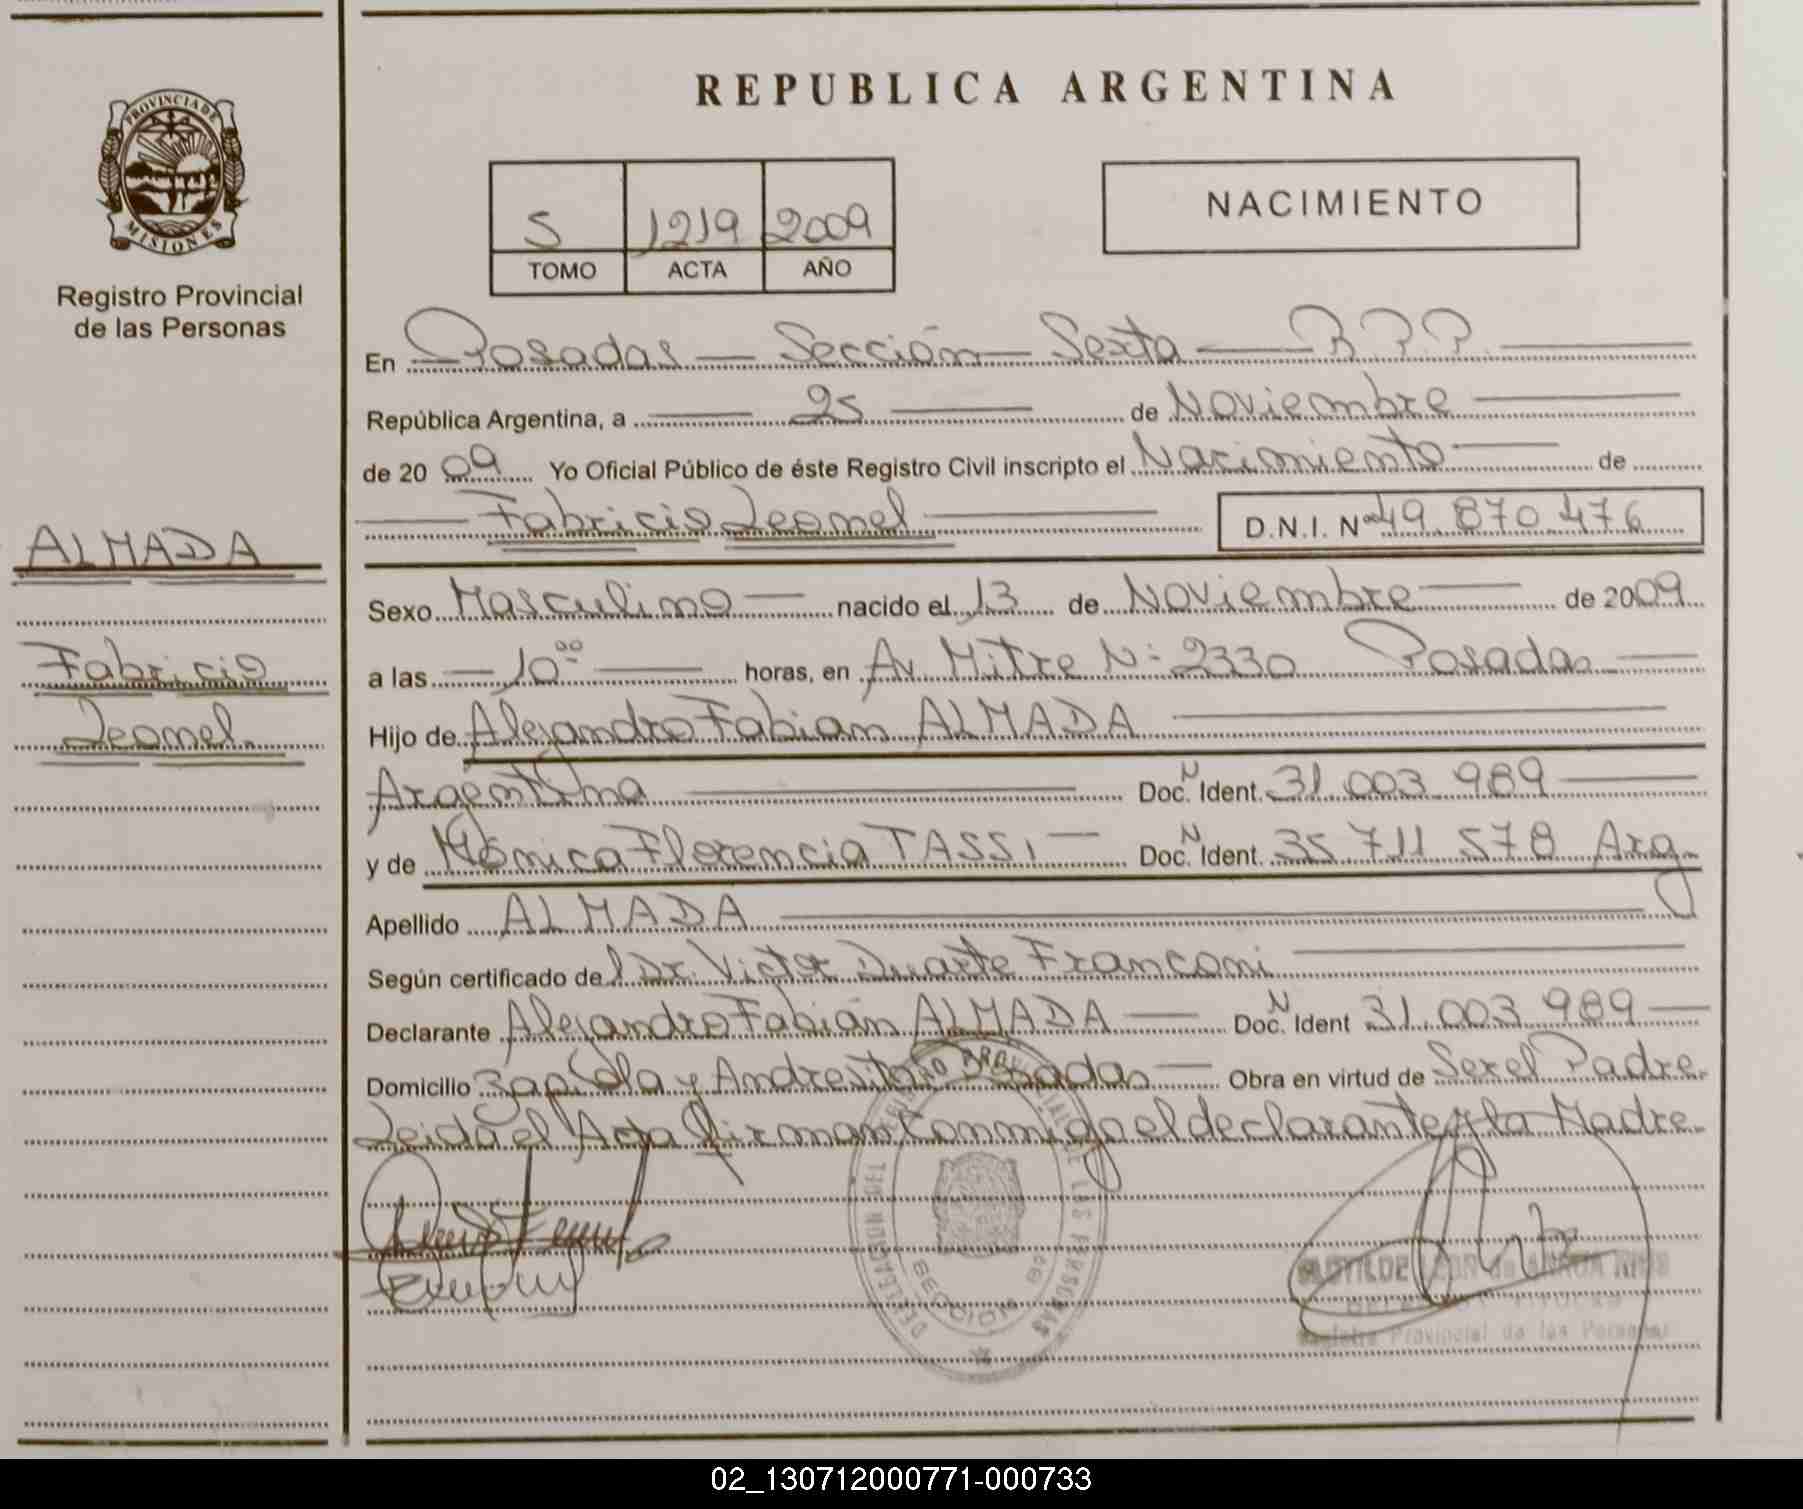 PROVINCIA DE
MISIONES
Registro Provincial
de las Personas
ALMADA
Fabricio
Leonel.
REPUBLICA ARGENTINA
S 1219 2009
TOMO ACTA AÑO
NACIMIENTO
En Posadas Sección Sexta
República Argentina, a 25 de Noviembre
de 2009 Yo Oficial Público de éste Registro Civil inscripto el Nacimiento de
Fabricio Leonel D.N.I. Nº 49.870.476
Sexo Masculino nacido el 13 de Noviembre de 2009
a las 10 00 horas, en Av. Mitre Nº 2330 Posadas
Hijo de Alejandro Fabian ALMADA
Argentina Doc. N Ident. 31.003.989
y de Mónica Florencia TASSI Doc. N Ident. 35 711 578 Arg.
Apellido ALMADA
Según certificado del Dr. Victor Duarte Franconi
Declarante Alejandro Fabián ALMADA Doc. N Ident 31.003.989
Domicilio Zapiola y Andresito Posadas Obra en virtud de Ser el Padre.
Leida el Acta firman conmigo el declarante y la Madre.
REGISTRO PROVINCIAL DE LAS PERSONAS
DELEGACION
SECCION 6º
Registro Provincial de las Personas
02_130712000771-000733